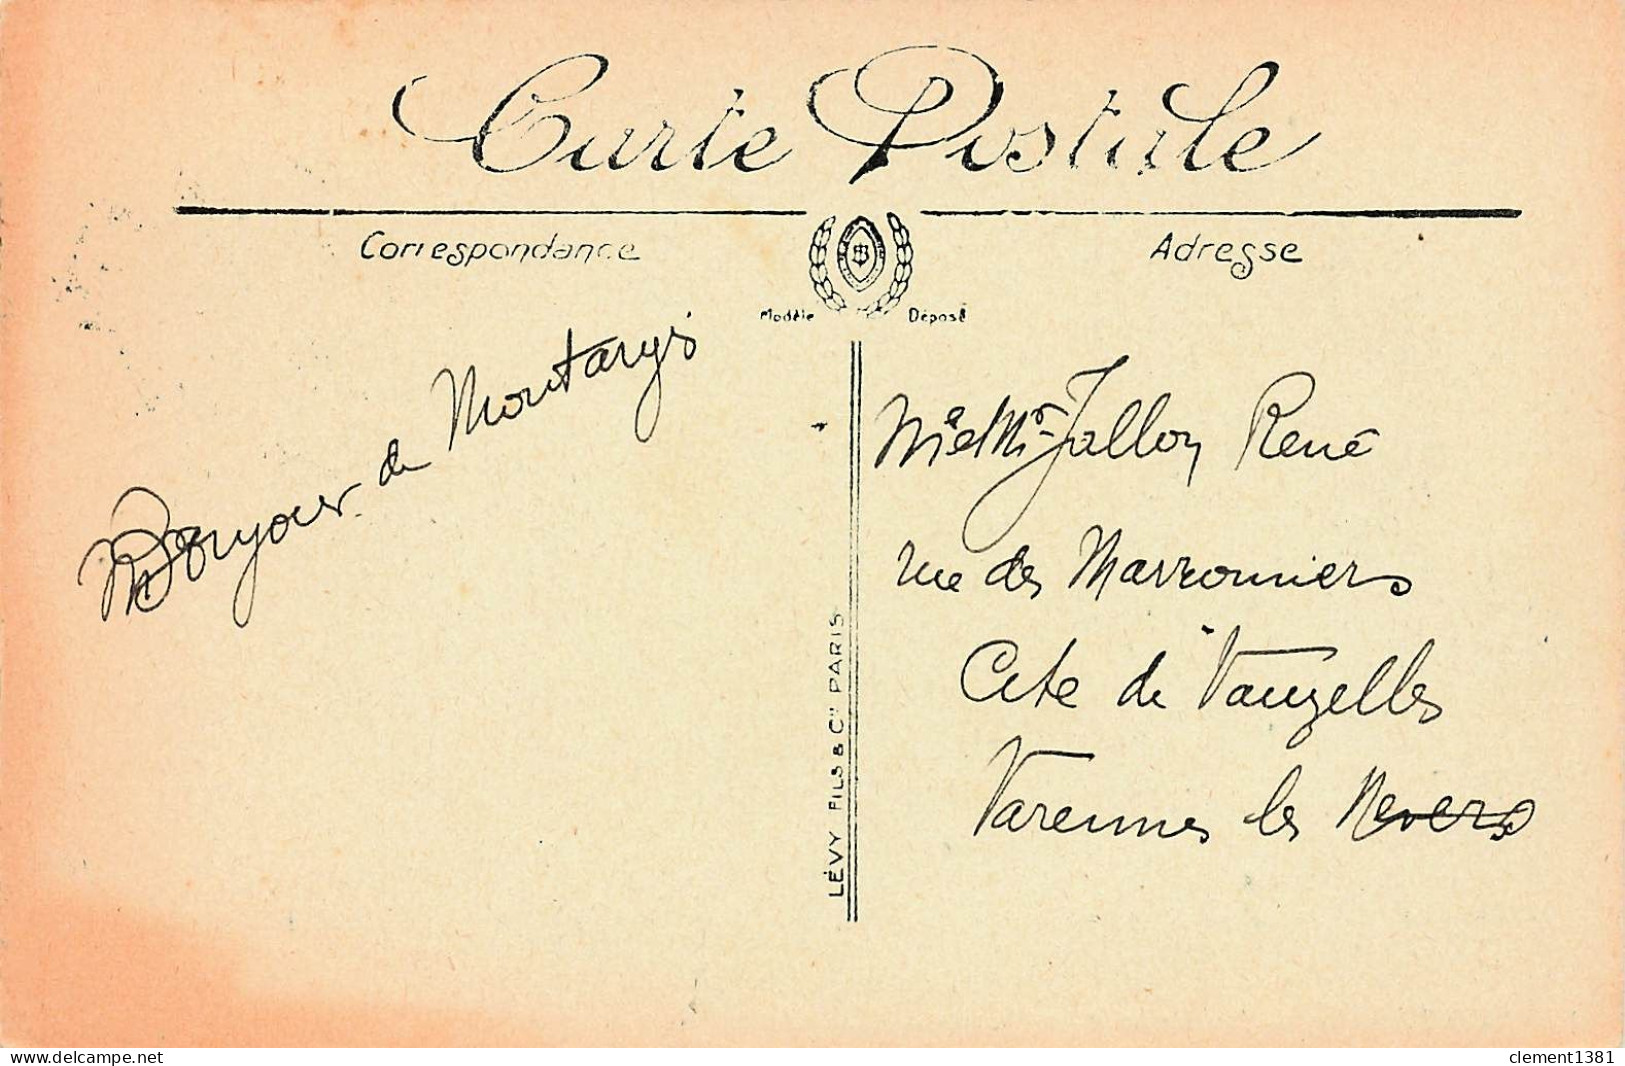 Carte Postale
Correspondance
Adresse
Modèle Déposé
Bonjour de Montargis
Mr Jallon René
rue des Marronniers
Cité de Vauzelles
Varennes les Nevers
LÉVY FILS & Cie PARIS
www.delcampe.net
clement1381